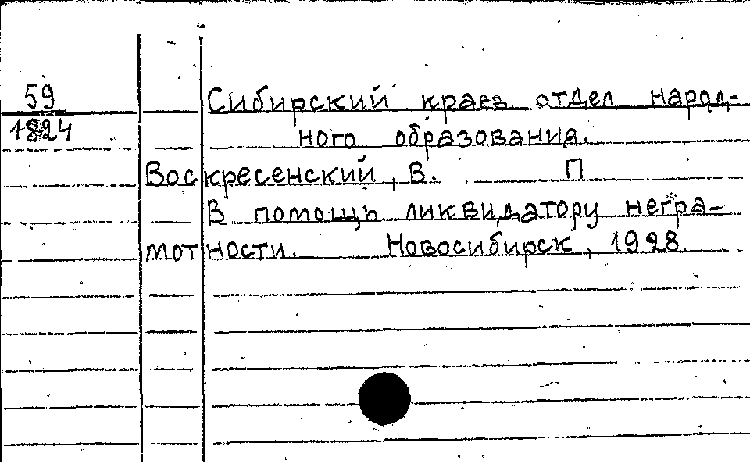 59
Сибирский краев отдел народ-
1824
ного образования.
Воскресенский, В. П
В помощь ликвидатору негра-
мотности. Новосибирск, 1928.